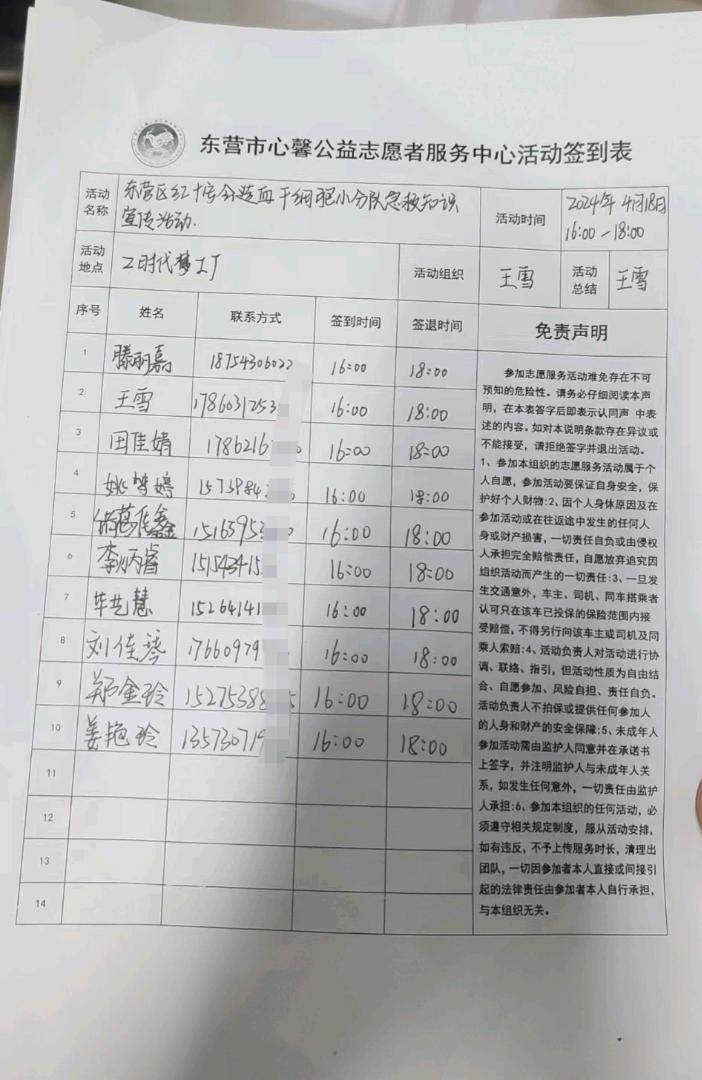 东营市心馨公益志愿者服务中心活动签到表
活动名称
东营区红十字会造血干细胞小分队急救知识
宣传活动.
活动时间
2024年 4月18日
16:00-18:00
活动地点
Z时代梦工厂
活动组织
王雪
活动总结
王雪
序号 姓名 联系方式 签到时间 签退时间 免责声明
1 滕丽嘉 18754306022 16:00 18:00
2 王雪 1786031253 16:00 18:00
3 田佳娟 1786216 0 16:00 18:00
4 姚梦婷 1575984 16:00 18:00
5 佳鑫 15163953 0 16:00 18:00
6 李炳睿 151543415 16:00 18:00
7 毕艺慧 15264141 16:00 18:00
8 刘佳琦 17660979 16:00 18:00
9 郑金玲 15275388 5 16:00 18:00
10 姜艳玲 135730719 16:00 18:00
11
12
13
14
参加志愿服务活动难免存在不可
预知的危险性。请务必仔细阅读本声
明，在本表签字后即表示认同声 中表
述的内容。如对本说明条款存在异议或
不能接受，请拒绝签字并退出活动。
1、参加本组织的志愿服务活动属于个
人自愿，参加活动要保证自身安全，保
护好个人财物:2、因个人身休原因及在
参加活动或在往返途中发生的任何人
身或财产损害，一切责任自负或由侵权
人承担完全赔偿责任，自愿放弃追究因
组织活动而产生的一切责任:3、一旦发
生交通意外，车主、司机、同车搭乘者
认可只在该车已投保的保险范围内接
受赔偿，不得另行向该车主或司机及同
乘人索赔:4、活动负责人对活动进行协
调、联络、指引，但活动性质为自由结
合、自愿参加、风险自担、责任自负。
活动负责人不拍保或提供任何参加人
的人身和财产的安全保障:5、未成年人
参加活动需由监护人同意并在承诺书
上签字，并注明监护人与未成年人关
系，如发生任何意外，一切责任由监护
人承担:6、参加本组织的任何活动，必
须遵守相关规定制度，服从活动安排，
如有违反，不予上传服务时长，清理出
团队，一切因参加者本人直接或间接引
起的法律责任由参加者本人自行承担，
与本组织无关。